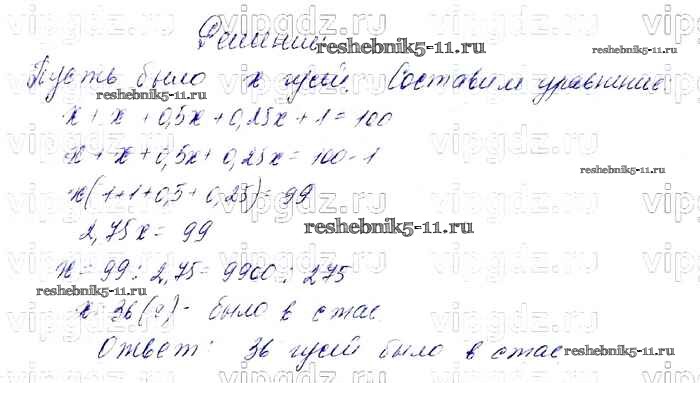 Решение.
Пусть было x гусей. Составим уравнение
x + x + 0,5x + 0,25x + 1 = 100
x + x + 0,5x + 0,25x = 100 - 1
x(1+1+0,5+0,25) = 99
2,75x = 99
x = 99 : 2,75 = 9900 : 275
x = 36 (г) - было в стае
Ответ: 36 гусей было в стае
reshebnik5-11.ru
reshebnik5-11.ru
reshebnik5-11.ru
reshebnik5-11.ru
reshebnik5-11.ru
reshebnik5-11.ru
vipgdz.ru